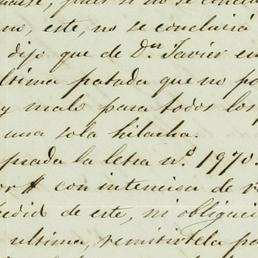 no se conclu
no, este, no se concluirá
dijo que de Dn. Javier en
ltima patada que no po
y malo para todos los
una sola hilacha.
prada la letra n.º 1970.
con intencion de
edid de este, ni obligaci
ultima, remitirtela pa